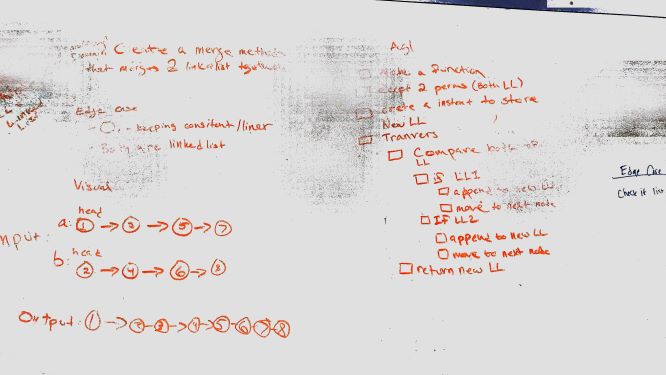 Create a merge method
that merges 2 linked list together
Edge case
- O. - keeping consitent/liner
- Both are linkedlist
Visual
Input:
a: head
1 → 3 → 5 → 7
b: head
2 → 4 → 6 → 8
Output: 1 → 2 → 3 → 4 → 5 → 6 → 7 → 8
Agl
Make a function
accept 2 perms (Both LL)
create a instant to store
New LL
Tranvers
Compare both of
LL
is LL1
append to new LL
move to next node
If LL2
append to new LL
move to next node
return new LL
Edge Case
Check if list